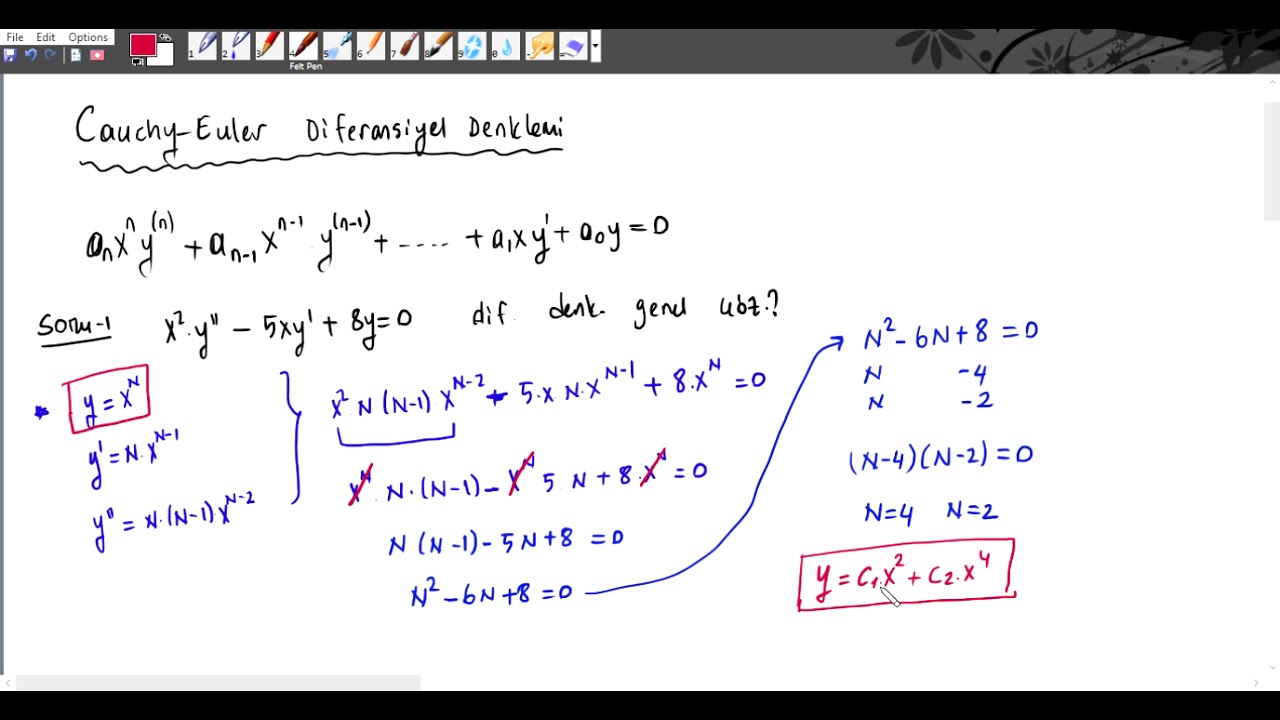 File Edit Options
1 2 3 4 5 6 7 8 9 0
Felt Pen
Cauchy-Euler Diferansiyel Denklemi
aₙxⁿy⁽ⁿ⁾ + aₙ₋₁xⁿ⁻¹y⁽ⁿ⁻¹⁾ + ..... + a₁xy' + a₀y = 0
Soru-1 x²·y" - 5xy' + 8y = 0 dif. denk. genel çöz.?
y = x^N
y' = N·x^(N-1)
y" = N·(N-1)x^(N-2)
x² N (N-1) x^(N-2) - 5·x N·x^(N-1) + 8·x^N = 0
x^N N·(N-1) - x^N 5 N + 8·x^N = 0
N (N-1) - 5N + 8 = 0
N² - 6N + 8 = 0
N² - 6N + 8 = 0
N -4
N -2
(N-4)(N-2) = 0
N=4 N=2
y = C₁·x² + C₂·x⁴